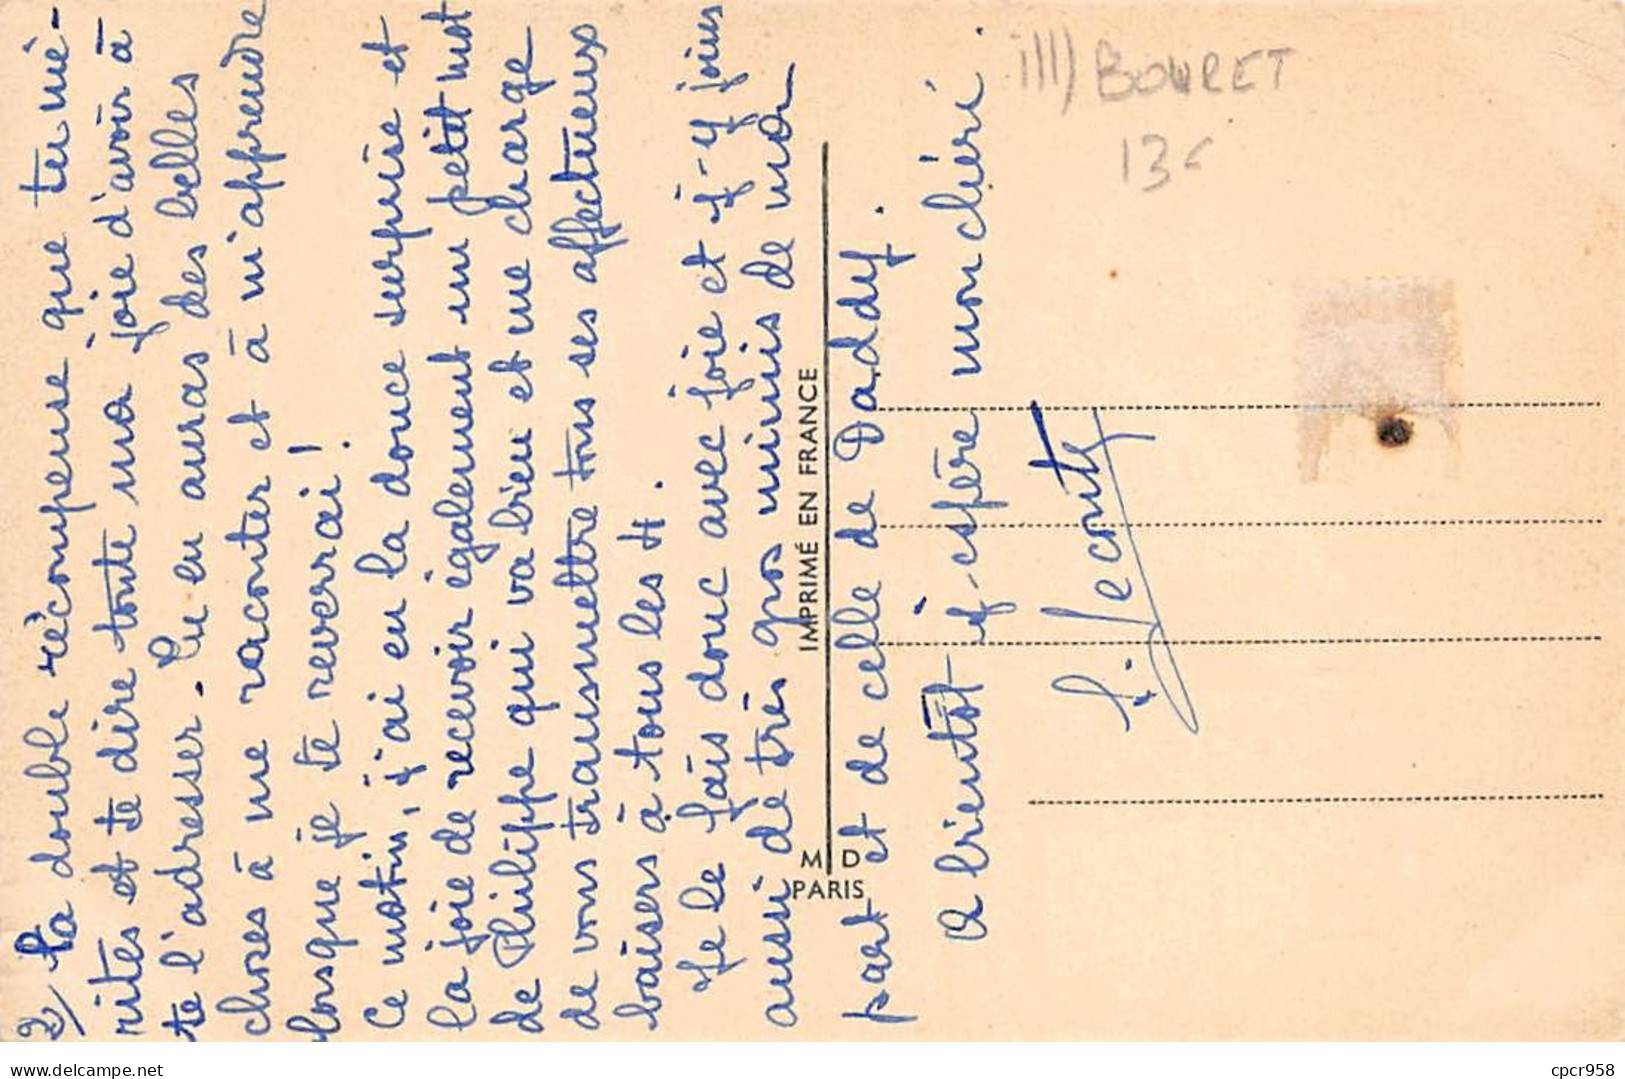 2/ la double récompense que tu mé-
rites et te dire toute ma joie d'avoir à
te l'adresser. Tu en auras des belles
choses à me raconter et à m'apprendre
lorsque je te reverrai !
Ce matin, j'ai eu la douce surprise et
la joie de recevoir également un petit mot
de Philippe qui va bien et me charge
de vous transmettre tous ses affectueux
baisers à tous les 4.
Je le fais donc avec joie et j-y joins
aussi de très gros mimis de ma
part et de celle de Daddy.
A bientôt j-espère mon chéri.
Leconte
IMPRIMÉ EN FRANCE
M D
PARIS
ill) BOURET
13
www.delcampe.net
cpcr958